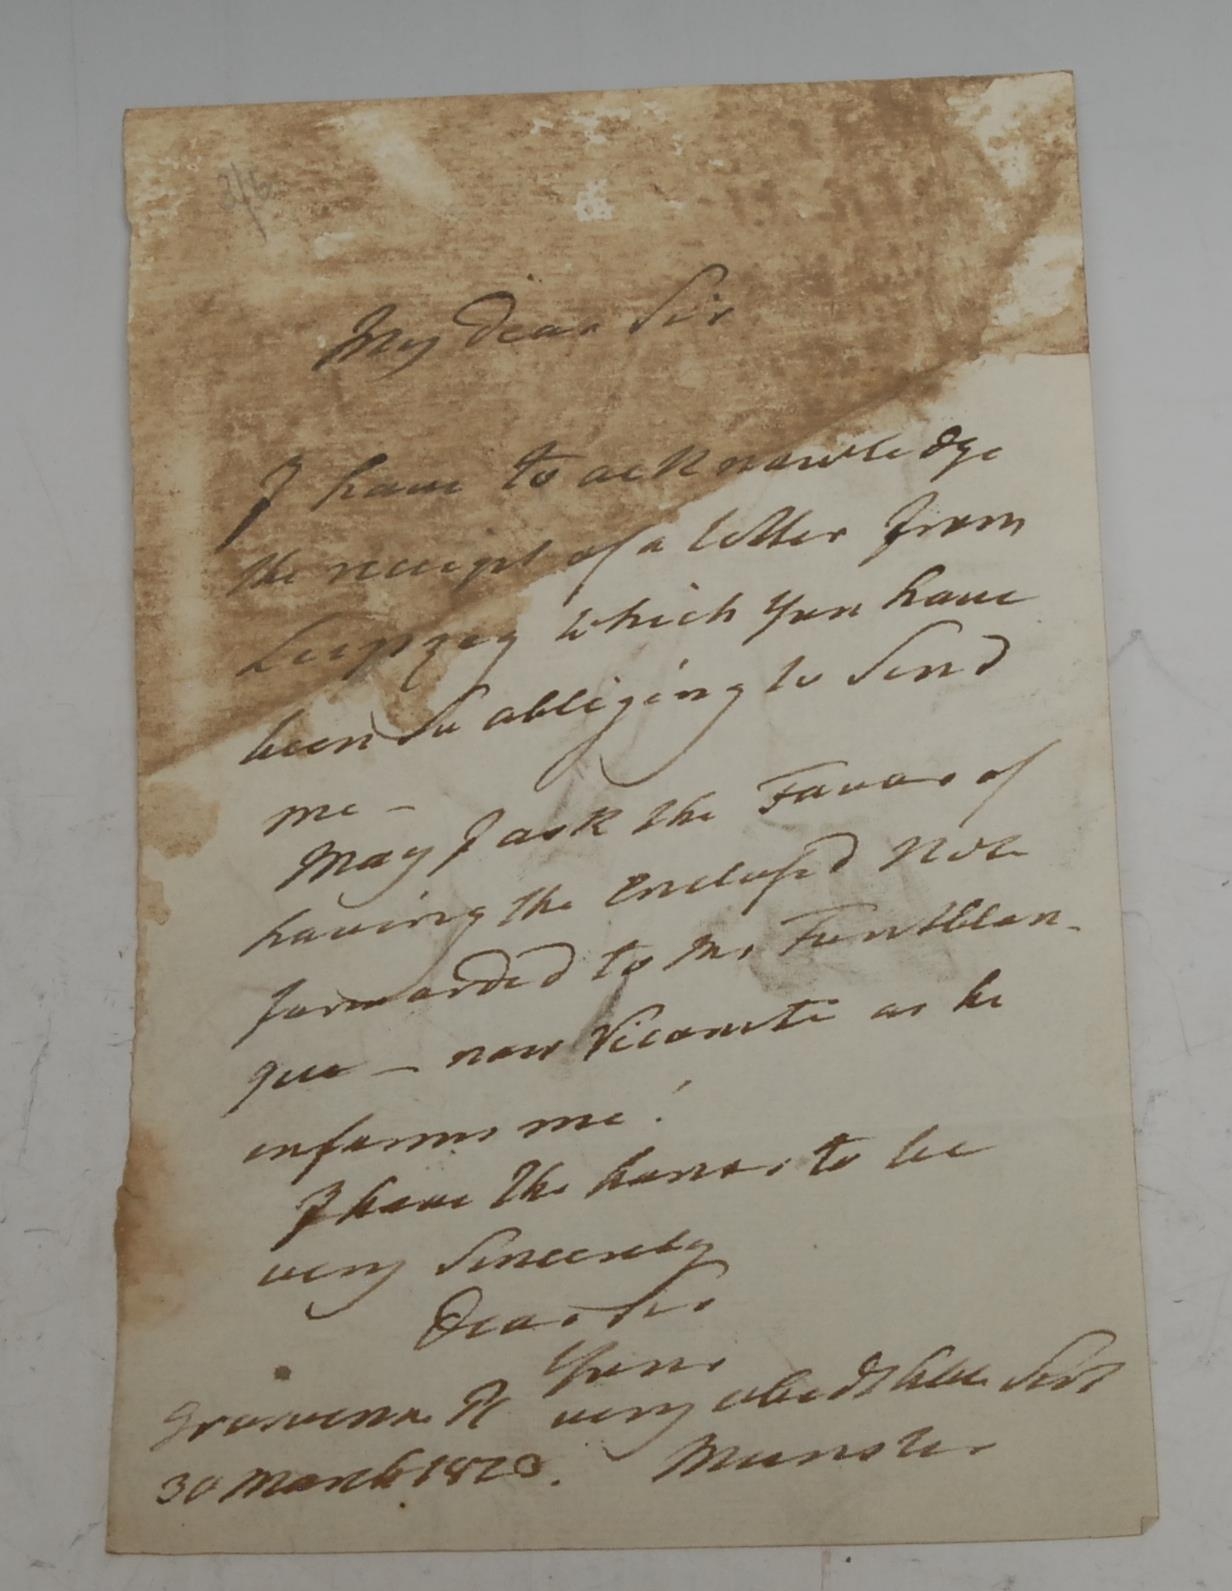 2/6
My dear Sir
I have to acknowledge
the receipt of a letter from
Leipzig which you have
been so obliging to send
me –
May I ask the Favor of
having the enclosed Note
forwarded to Mr Fontblan-
que – now Vicomte as he
informs me!
I have the honor to be
very sincerely
Dear Sir
Your
very obedt hble Servt
Grosvenor Pl
30 March 1823.
Munster